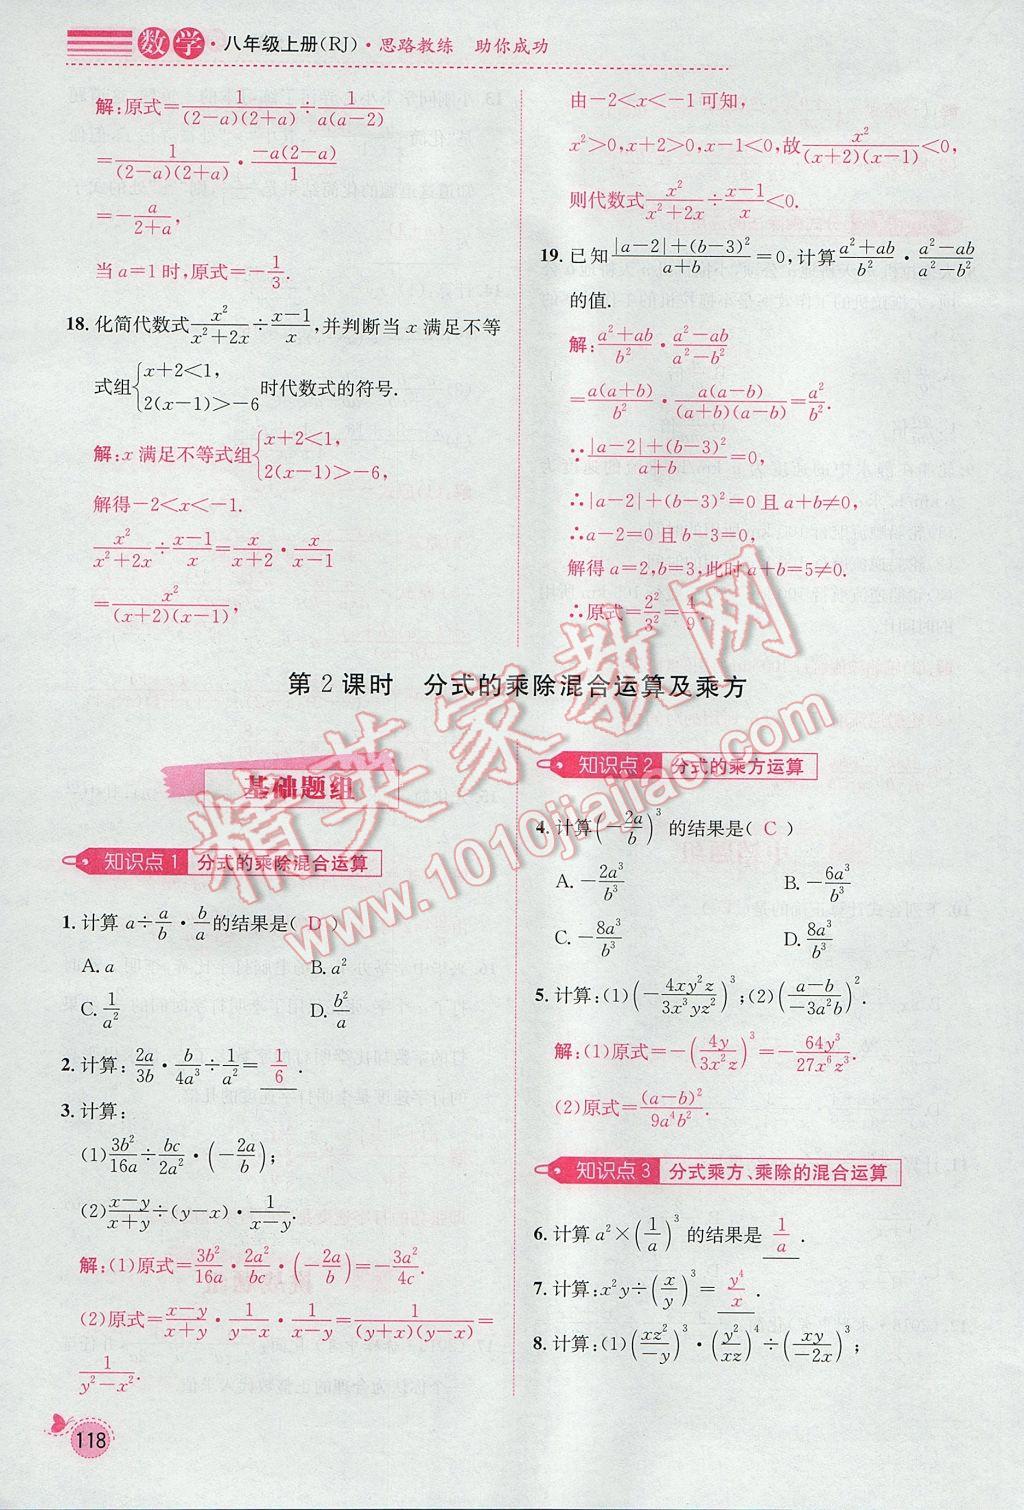 数学·八年级上册(RJ)·思路教练 助你成功
解:原式=\frac{1}{(2-a)(2+a)}÷\frac{1}{a(a-2)}
=\frac{1}{(2-a)(2+a)}·\frac{-a(2-a)}{1}
=-\frac{a}{2+a},
当a=1时,原式=-\frac{1}{3}.
18. 化简代数式\frac{x^2}{x^2+2x}÷\frac{x-1}{x},并判断当x满足不等
式组{x+2<1, 2(x-1)>-6 时代数式的符号.
解:x满足不等式组{x+2<1, 2(x-1)>-6,
解得-2<x<-1.
\frac{x^2}{x^2+2x}÷\frac{x-1}{x}=\frac{x}{x+2}·\frac{x}{x-1}
=\frac{x^2}{(x+2)(x-1)},
由-2<x<-1可知,
x^2>0,x+2>0,x-1<0,故\frac{x^2}{(x+2)(x-1)}<0,
则代数式\frac{x^2}{x^2+2x}÷\frac{x-1}{x}<0.
19. 已知\frac{|a-2|+(b-3)^2}{a+b}=0,计算\frac{a^2+ab}{b^2}·\frac{a^2-ab}{a^2-b^2}
的值.
解:\frac{a^2+ab}{b^2}·\frac{a^2-ab}{a^2-b^2}
=\frac{a(a+b)}{b^2}·\frac{a(a-b)}{(a+b)(a-b)}=\frac{a^2}{b^2}.
∵\frac{|a-2|+(b-3)^2}{a+b}=0,
∴|a-2|+(b-3)^2=0且a+b≠0,
∴a-2=0且b-3=0,
解得a=2,b=3,此时a+b=5≠0.
∴原式=\frac{2^2}{3^2}=\frac{4}{9}.
第2课时 分式的乘除混合运算及乘方
基础题组
知识点1 分式的乘除混合运算
1. 计算a÷\frac{a}{b}·\frac{b}{a}的结果是( D )
A. a B. a^2
C. \frac{1}{a^2} D. \frac{b^2}{a}
2. 计算:\frac{2a}{3b}·\frac{b}{4a^3}÷\frac{1}{a^2}=\frac{1}{6}.
3. 计算:
(1)\frac{3b^2}{16a}÷\frac{bc}{2a^2}·(-\frac{2a}{b});
(2)\frac{x-y}{x+y}÷(y-x)·\frac{1}{x-y}.
解:(1)原式=\frac{3b^2}{16a}·\frac{2a^2}{bc}·(-\frac{2a}{b})=-\frac{3a^2}{4c}.
(2)原式=\frac{x-y}{x+y}·\frac{1}{y-x}·\frac{1}{x-y}=\frac{1}{(y+x)(y-x)}=
\frac{1}{y^2-x^2}.
知识点2 分式的乘方运算
4. 计算(-\frac{2a}{b})^3的结果是( C )
A. -\frac{2a^3}{b^3} B. -\frac{6a^3}{b^3}
C. -\frac{8a^3}{b^3} D. \frac{8a^3}{b^3}
5. 计算:(1)(-\frac{4xy^2z}{3x^3yz^2})^3;(2)(\frac{a-b}{-3a^2b})^2.
解:(1)原式=-(\frac{4y}{3x^2z})^3=-\frac{64y^3}{27x^6z^3}.
(2)原式=\frac{(a-b)^2}{9a^4b^2}.
知识点3 分式乘方、乘除的混合运算
6. 计算a^2×(\frac{1}{a})^3的结果是\frac{1}{a}.
7. 计算:x^2y÷(\frac{x}{y})^3=\frac{y^4}{x}.
8. 计算:(1)(\frac{xz^2}{-y})^3·(\frac{y^2}{xz})^4÷(\frac{xy}{-2x})^3;
118
精英家教网
www.1010jiajiao.com